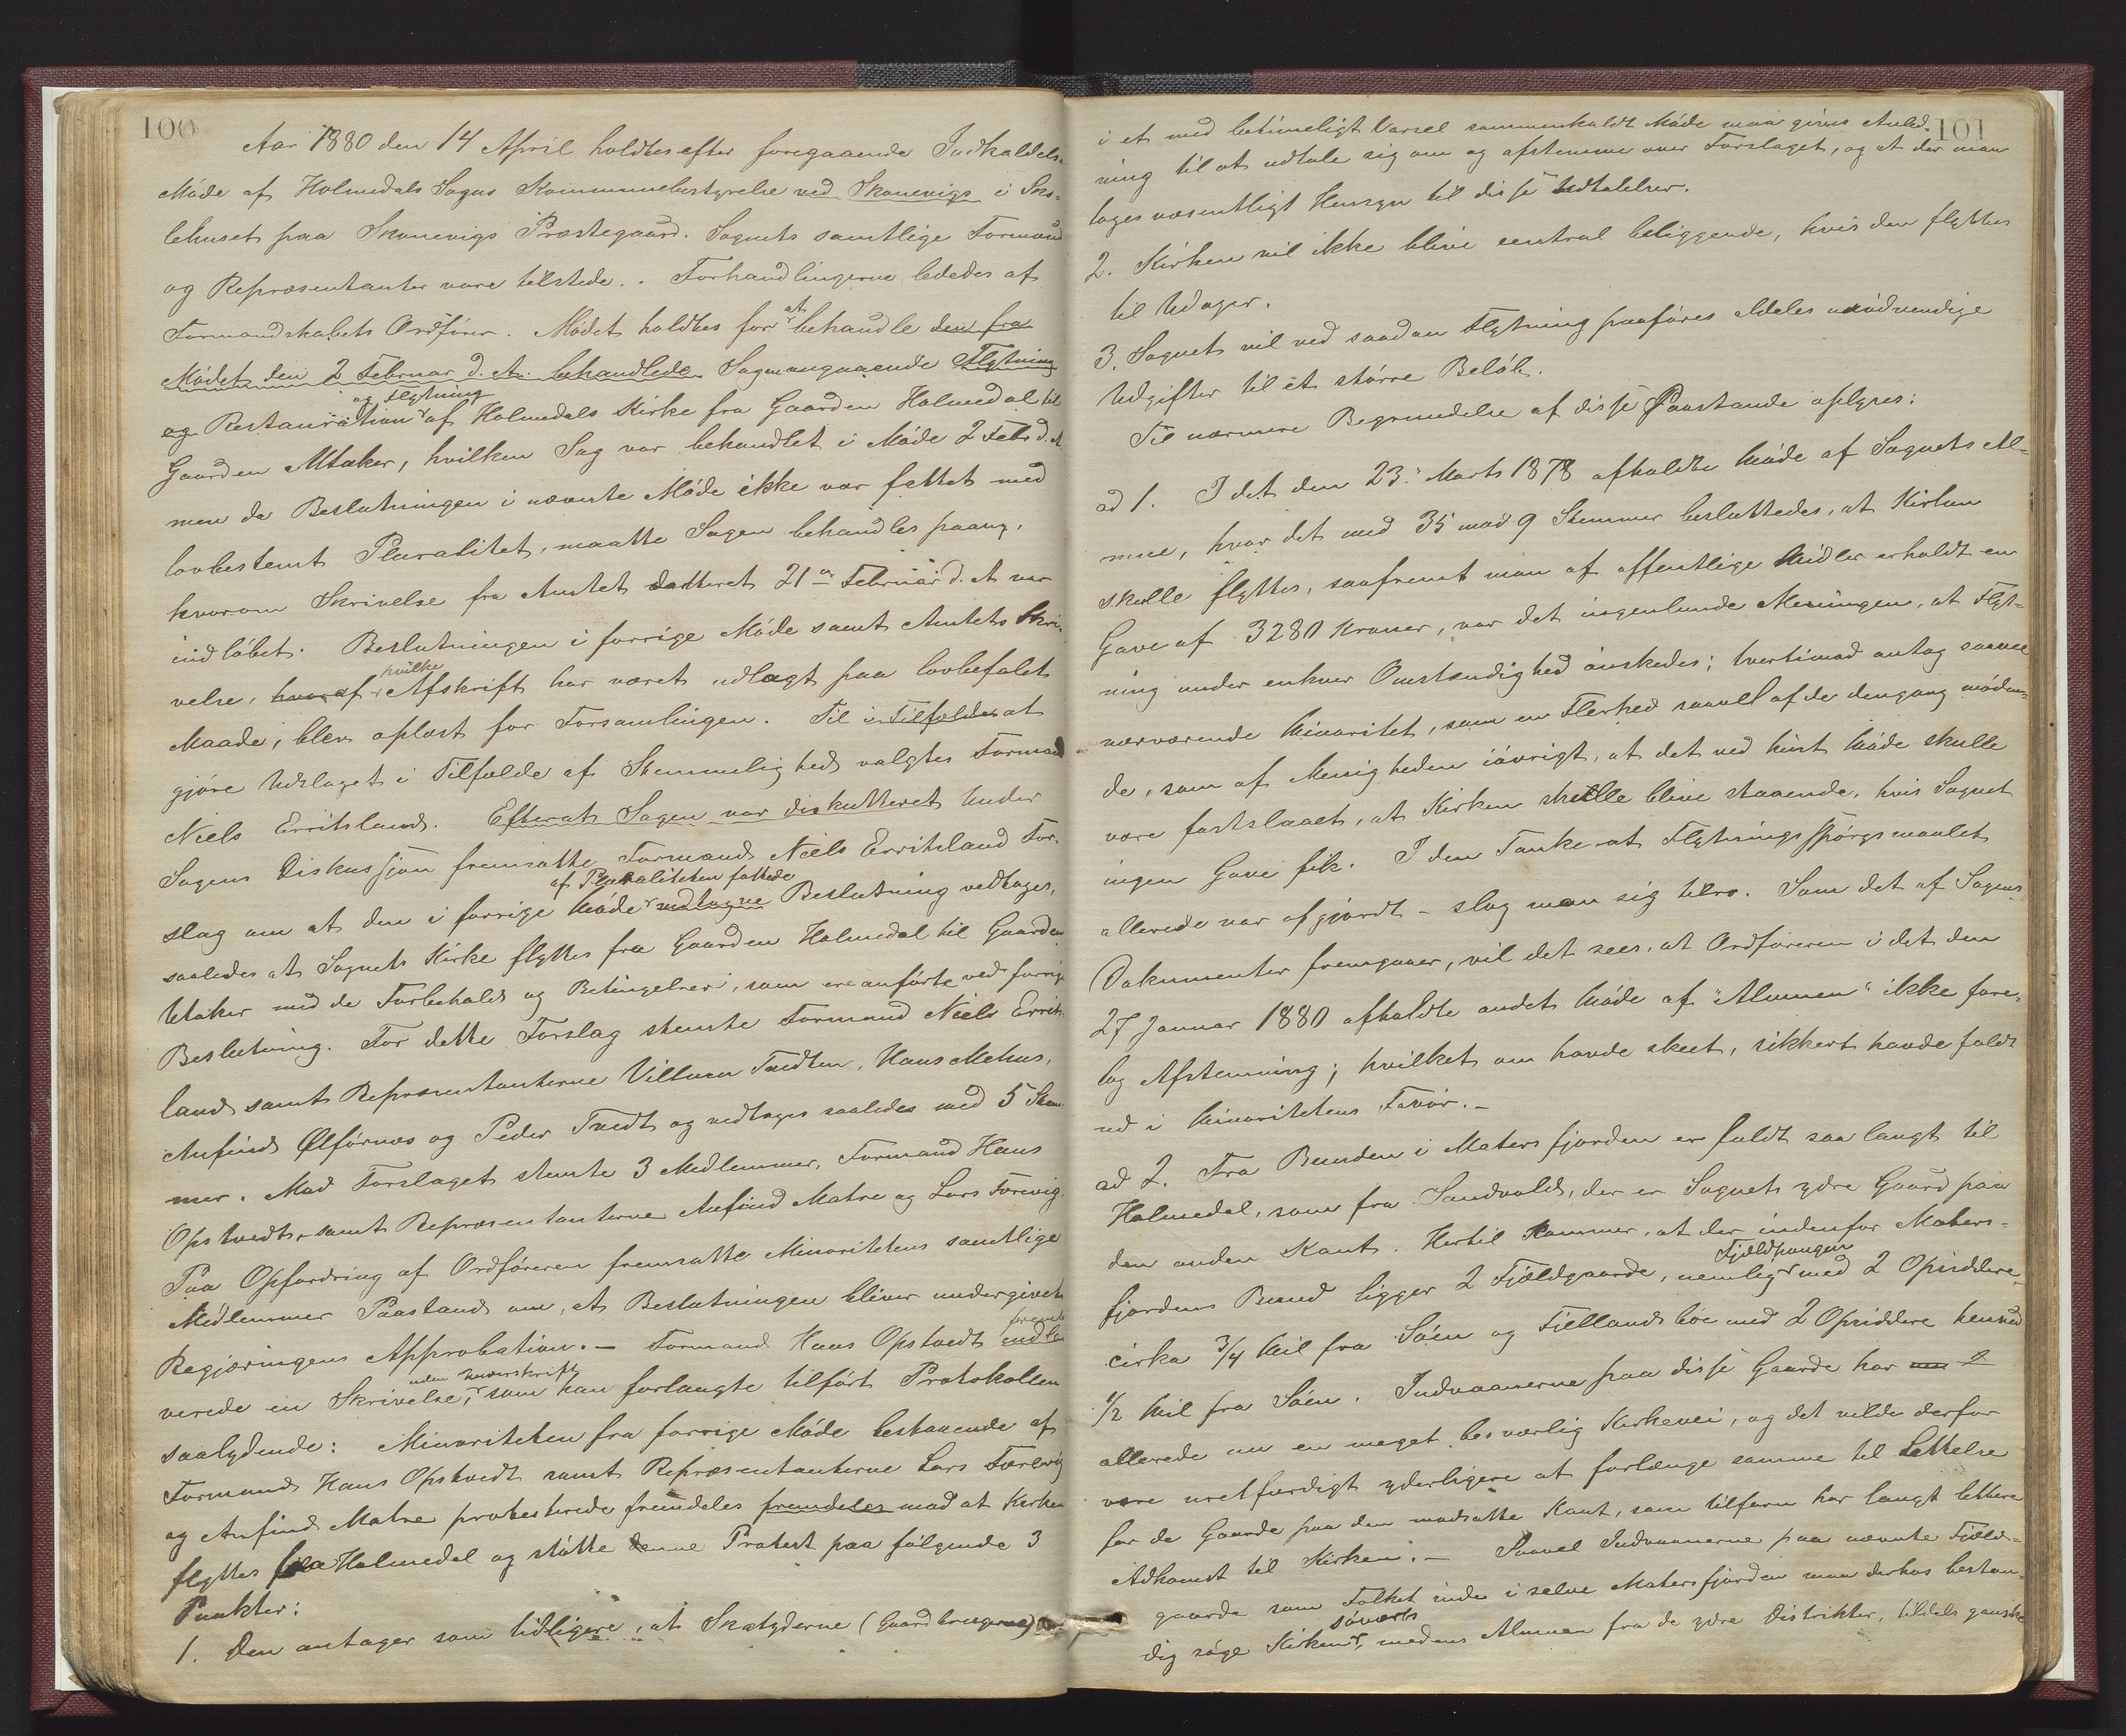 100
Aar 1880 den 14 April holdtes efter foregaaende Indkaldelse
Møde af Holmedals Sogns Kommunebestyrelse ved Skonevigs i Sko-
lehuset paa Skonevigs Præstegaard. Sognets samtlige Formænd
og Repræsentanter vare tilstede. Forhandlingerne lededes af
Formandskabets Ordfører. Mødet holdtes for at behandle den fra
Mødet den 2 Februar d. A. behandlede Sag angaaende Flytning
og Restauration og Flytning af Holmedals Kirke fra Gaarden Holmedal til
Gaarden Utaker, hvilken Sag var behandlet i Møde 2 Febr d. A.
men da Beslutningen i nævnte Møde ikke var fattet med
lovbestemt Pluralitet, maatte Sagen behandles paany,
hvorom Skrivelse fra Amtet datteret 21de Februar d. A var
indløbet. Beslutningen i forrige Møde samt Amtets Skri-
velse, hvoraf hvilke Afskrift har været udlagt paa lovbefalet
Maade, blev oplæst for Forsamlingen. Til i Tilfælde at
gjøre Udslaget i Tilfælde af Stemmelighed valgtes Formand
Niels Erritsland. Efterat Sagen var diskutteret Under
Sagens Diskussjon fremsatte Formand Niels Erritsland For-
slag om at den i forrige Møde af Pluraliteten fattede vedtagne Beslutning vedtages,
saaledes at Sognets Kirke flyttes fra Gaarden Holmedal til Gaarden
Utaker med de Forbehold og Betingelser, som ere anførte ved forrige
Beslutning. For dette Forslag stemte Formand Niels Errits-
land samt Repræsentanterne Villum Tvedten, Hans Mehus,
Anfind Ølførnes og Peder Tvedt og vedtages saaledes med 5 Stem-
mer. Mod Forslaget stemte 3 Medlemmer, Formand Hans
Opstvedt, samt Repræsentanterne Anfind Matre og Lars Førevig.
Paa Opfordring af Ordføreren fremsatte Minoritetens samtlige
Medlemmer Paastand om, at Beslutningen bliver undergivet
Regjæringens Approbation. – Formand Hans Opstvedt fremle indle
verede en Skrivelse, uden Underskrift, som han forlangte tilført Protokollen
saalydende: Minoriteten fra forrige Møde bestaaende af
Formand Hans Opstvedt samt Repræsentanterne Lars Førevig
og Anfind Matre protesterede fremdeles fremdeles mod at Kirken
flyttes fra Holmedal og støtte denne Protest paa følgende 3
Punkter:
1. Den antager som tidligere, at Skatyderne (Gaardbrugerne)
101
i et med betimeligt Varsel sammenkaldt Møde maa gives Anled-
ning til at udtale sig om og afstemme over Forslaget, og at der maa
tages væsentligt Hensyn til disse Udtalelser.
2. Kirken vil ikke blive central beliggende, hvis den flyttes
til Udager.
3. Sognet vil ved saadan Flytning paaføres aldeles unødvendige
Udgifter til et større Beløb.
Til nærmere Begrundelse af disse Paastande oplyses:
ad 1. I det den 23. Marts 1878 afholdte Møde af Sognets Al-
mue, hvor det med 35 mod 9 Stemmer besluttedes, at Kirken
skulle flyttes, saafremt man af offentlige Midler erholdt en
Gave af 3280 Kroner, var det ingenlunde Meningen, at Flyt-
ning under enhver Omstændighed ønskedes; tvertimod antog saavel
nærværende Minoritet, som en Flerhed saavel af de dengang møden-
de, som af Menigheden iøvrigt, at det ved hint Møde skulle
være fastslaaet, at Kirken skulle blive staaende, hvis Sognet
ingen Gave fik. I den Tanke at Flytningsspørgsmaalet
allerede var afgjordt – slog man sig tilro. Som det af Sagens
Dokumenter fremgaaer, vil det sees, at Ordføreren i det den
27 Januar 1880 afholdte andet Møde af "Almuen" ikke fore-
tog Afstemning; hvilket om havde skeet, sikkert havde faldt
ud i Minoritetens Favør. –
ad 2. Fra Bunden i Matersfjorden er fuldt saa langt til
Holmedal, som fra Sandvold, der er Sognets ydre Gaard paa
den anden Kant. Hertil kommer, at der indenfor Maters-
fjordens Bund ligger 2 Fjældgaarde, nemlig Fjeldhaugen med 2 Opsiddere
cirka 3/4 Mil fra Søen og Fjellandsbøe med 2 Opsiddere henved
1/2 Mil fra Søen. Indvaanerne paa disse Gaarde har
allerede nu en meget besværlig Kirkevei, og det vilde derfor
være uretfærdigt yderligere at forlænge samme til Lettelse
for de Gaarde paa den modsatte Kant, som tilforn har langt lettere
Adkomst til Kirken. – Saavel Indvaanerne paa nævnte Fjæld-
gaarde som Folket inde i selve Matersfjorden maa derhos bestan-
dig søge Kirken søværts, medens Almuen fra de ydre Distrikter, tildels ganske